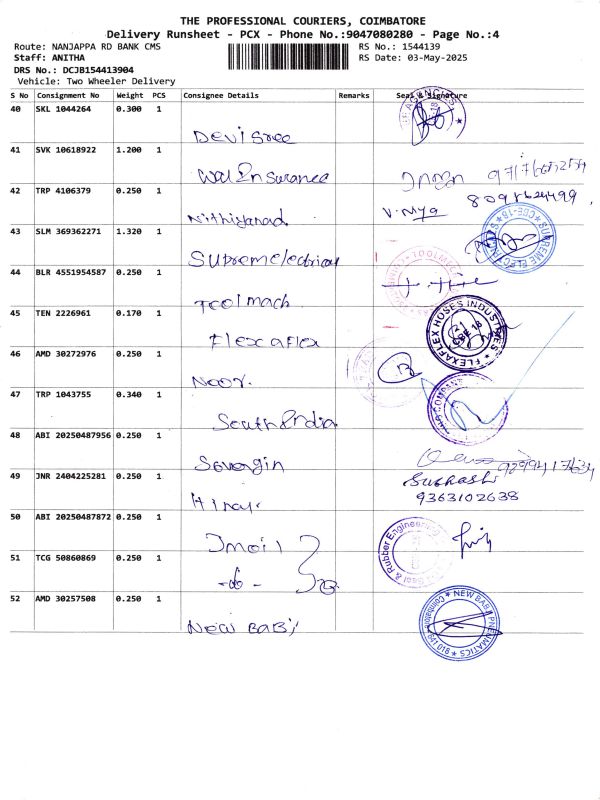 THE PROFESSIONAL COURIERS, COIMBATORE
Delivery Runsheet - PCX - Phone No.:9047080280 - Page No.:4
Route: NANJAPPA RD BANK CMS
RS No.: 1544139
Staff: ANITHA
RS Date: 03-May-2025
DRS No.: DCJB154413904
Vehicle: Two Wheeler Delivery
S No Consignment No Weight PCS Consignee Details Remarks Seal & Signature
40 SKL 1044264 0.300 1
Devi Sree
41 SVK 10618922 1.200 1
42 TRP 4106379 0.250 1
8098624499
Nithiyanad
43 SLM 369362271 1.320 1
SUPREME ELEC
CBE-18
Supremelectrical
44 BLR 4551954587 0.250 1
TOOLMACH
Toolmach
45 TEN 2226961 0.170 1
FLEXAFLEX HOSES INDUSTRIES
CBE 18
Flexaflex
46 AMD 30272976 0.250 1
Noor
47 TRP 1043755 0.340 1
South India
48 ABI 20250487956 0.250 1
49 JNR 2404225281 0.250 1
9363102638
50 ABI 20250487872 0.250 1
51 TCG 50860869 0.250 1
Seal & Rubber Engineering
-do-
52 AMD 30257508 0.250 1
NEW BABJI PNEUMATICS
Coimbatore
New Babji